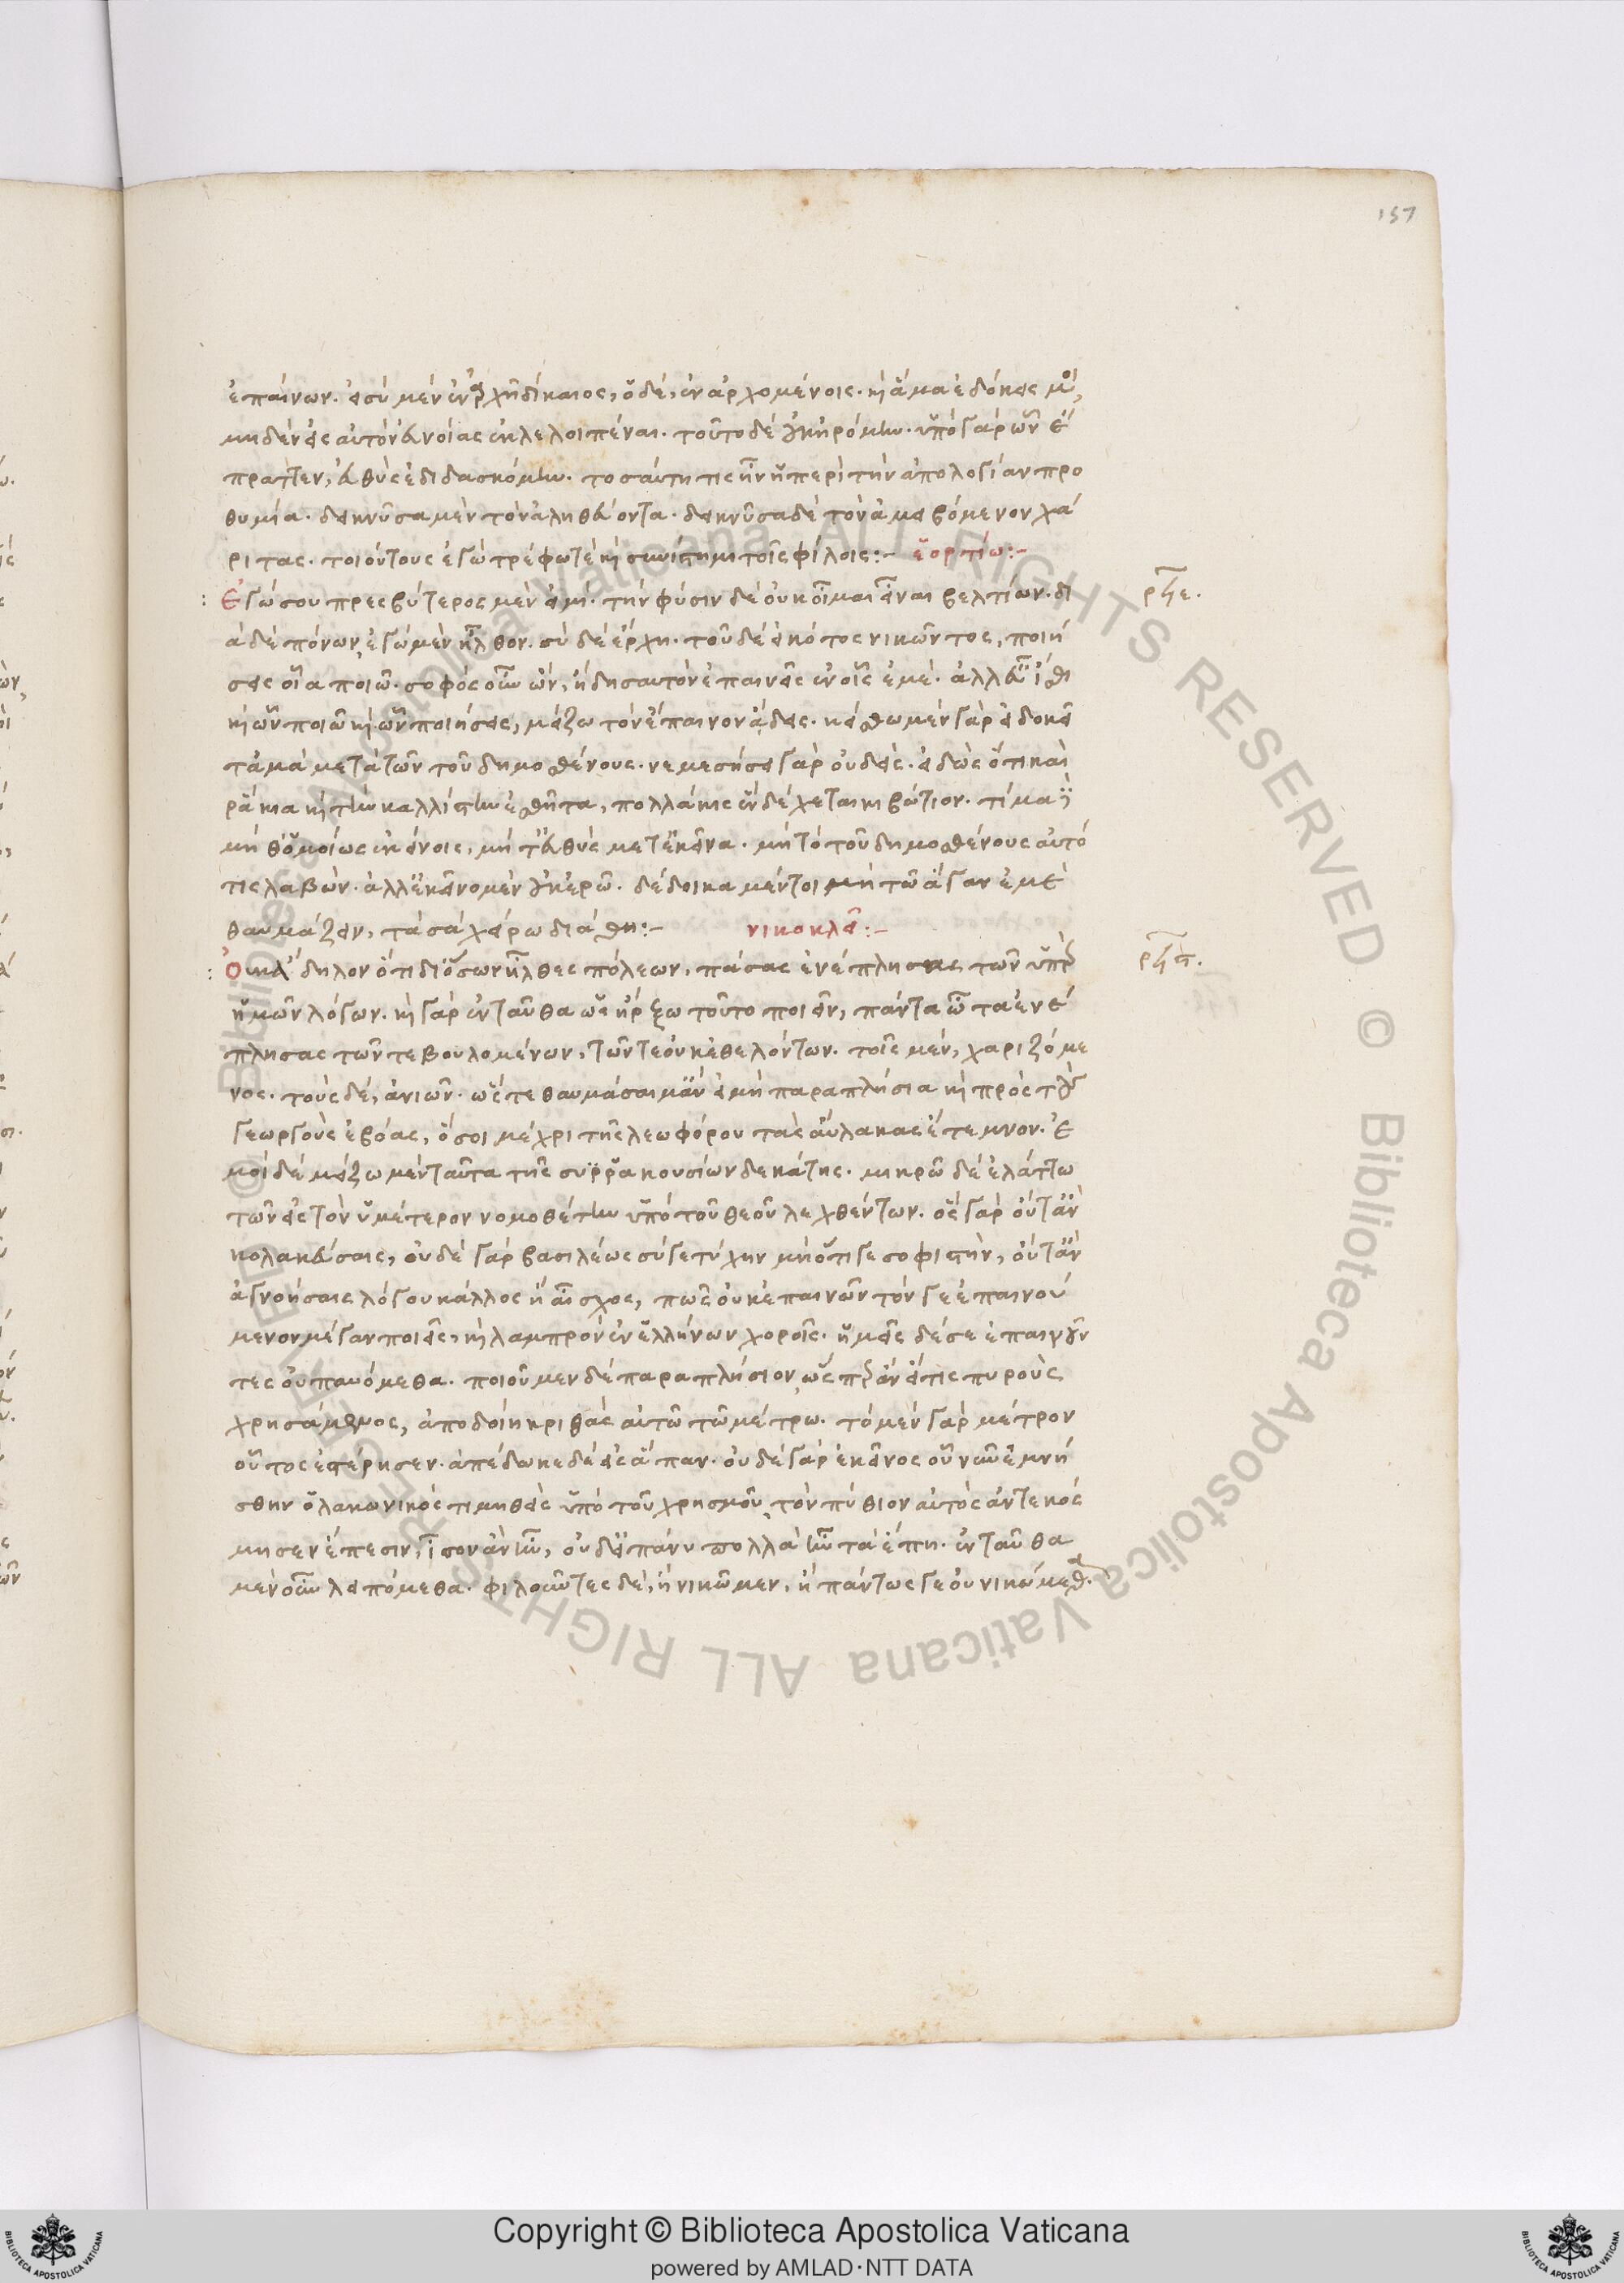 157
ἐπαίνων. εἰ σὺ μὲν ἐν ἀρχῇ δίκαιος, ὁ δέ, ἐν ἀρχομένοις. καὶ ἅμα ἐδόκεις μοι,
μηδὲν εἰς αὐτὸν εὐνοίας ἐκλελοιπέναι. τοῦτο δὲ
πραττεν, εὐθὺς ἐδιδασκόμην. τοσαύτη τις ἦν ἡ περὶ τὴν ἀπολογίαν προ
θυμία. δακνοῦσα μὲν τὸν ἀληθεύοντα. δακνοῦσα δὲ τὸν ἀμειβόμενον χά
ριτας. τοιούτους ἐγὼ τρέφω τὲ καὶ συνίστημι τοῖς φίλοις:– ἑορτίω:–
Ἐγώ σου πρεσβύτερος μὲν εἰμί. τὴν φύσιν δὲ οὐκ οἶμαι εἶναι βελτίων. δι
ρϟε.
ὰ δὲ πόνων, ἐγὼ μὲν ἦλθον. σὺ δὲ ἔρχη. τοῦ δὲ εἰκότος νικῶντος, ποιή
σεις οἷα ποιῶ. σοφὸς οὖν ὢν, ἤδη σαυτὸν ἐπαινεῖς ἐν οἷς ἐμέ. ἀλλ' εὖ ἴσθι
καὶ ὧν ποιῶ καὶ ὧν ποιήσεις, μείζω τὸν ἔπαινον ᾄδεις. κείσθω μὲν γὰρ εἰ δοκεῖ
τἀμὰ μετὰ τῶν τοῦ δημοσθένους. νεμεσήσει γὰρ οὐδείς. εἰδὼς ὅτι καὶ
ράκια καὶ τὴν καλλίστην ἐσθῆτα, πολλάκις ἓν δέχεται κιβώτιον. τίμα
μὴ θ' ὁμοίως ἐκείνοις, μήτ' εὐθὺς μετ' ἐκεῖνα. μὴ τὸ τοῦ δημοσθένους αὐτό
τις λαβών. ἀλλ' ἐκεῖνο μὲν δέδοικα μέντοι μὴ τῷ ἄγαν ἐμὲ
θαυμάζειν, τὰ σὰ χείρω διαθῇ:– νικοκλεῖ:–
Οὐκ ἄδηλον ὅτι δι' ὅσων ἦλθες πόλεων, πάσας ἐνέπλησας τῶν ὑπὲρ
ρϟϛ.
ἡμῶν λόγων. καὶ γὰρ ἐνταῦθα ὡς ἤρξω τοῦτο ποιεῖν, πάντα ὦτα ἐνέ
πλησας τῶν τε βουλομένων, τῶν τε οὐκ ἐθελόντων. τοῖς μέν, χαριζόμε
νος. τοὺς δέ, ἀνιῶν. ὥστε θαυμάσαιμ' ἂν εἰ μὴ παραπλήσια καὶ πρὸς τοὺς
γεωργοὺς ἐβόας, ὅσοι μέχρι τῆς λεωφόρου τὰς αὔλακας ἔτεμνον. ἐ
μοὶ δὲ μείζω μὲν ταῦτα τῆς συρρακουσίων δεκάτης. μικρῷ δὲ ἐλάττω
τῶν εἰς τὸν ὑμέτερον νομοθέτην ὑπὸ τοῦ θεοῦ λεχθέντων. ὃς γὰρ οὔτ' ἂν
κολακεύσαις, οὐδὲ γὰρ βασιλέως σύ γε τύχην μὴ ὅτι γε σοφιστὴν, οὔτ' ἂν
ἀγνοήσαις λόγου κάλλος ἢ αἶσχος, πῶς οὐκ ἐπαινῶν τόν γε ἐπαινού
μενον μέγαν ποιεῖς, καὶ λαμπρὸν ἐν ἑλλήνων χοροῖς. ἡμεῖς δέ σε ἐπαινοῦν
τες οὐ παυόμεθα. ποιοῦμεν δὲ παραπλήσιον, ὥσπερ ἂν εἴ τις πυροὺς
χρησάμενος, ἀποδοίη κριθὰς αὐτῷ τῷ μέτρῳ. τὸ μὲν γὰρ μέτρον
οὗτος ἐτήρησεν. ἀπέδωκε δὲ εἰς ἅπαν. οὐδὲ γὰρ ἐκεῖνος οὗ νῦν ἐμνή
σθην ὁ λακωνικὸς τιμηθεὶς ὑπὸ τοῦ χρησμοῦ, τὸν πύθιον αὐτὸς ἀντεκόσ
μησεν ἔπεσιν, ἴσον ἂν ἦν, οὐδ' εἰ πάνυ πολλὰ ἦν τὰ ἔπη. ἐνταῦθα
μὲν οὖν λειπόμεθα. φιλοῦντες δέ, ἢ νικῶμεν, ἢ πάντως γε οὐ νικώμεθα.
Copyright © Biblioteca Apostolica Vaticana
powered by AMLAD·NTT DATA